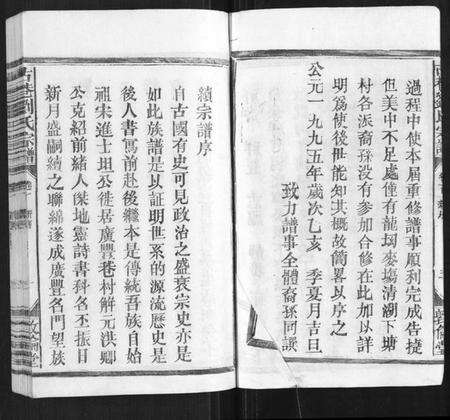 過程中使本屆重修譜事順利完成告捷
但美中不足處僅有龍塢麥塢清湖下塘
村各派裔孫没有參加合修在此加以詳
明爲使後世能知其概故簡畧以序之
公元一九九五年歲次乙亥 季夏月吉旦
致力譜事全體裔孫同譔
續宗譜序
自古國有史可見政治之盛衰宗史亦是
如此族譜是以証明世系的源流歷史是
後人書寫前赴後継本是傳統吾族自始
祖宋進士坦公徙居廣豐巷村解元洪卿
公克紹前緒人傑地靈詩書科名丕振日
新月盛嗣續之聯綿遂成廣豐名門望族